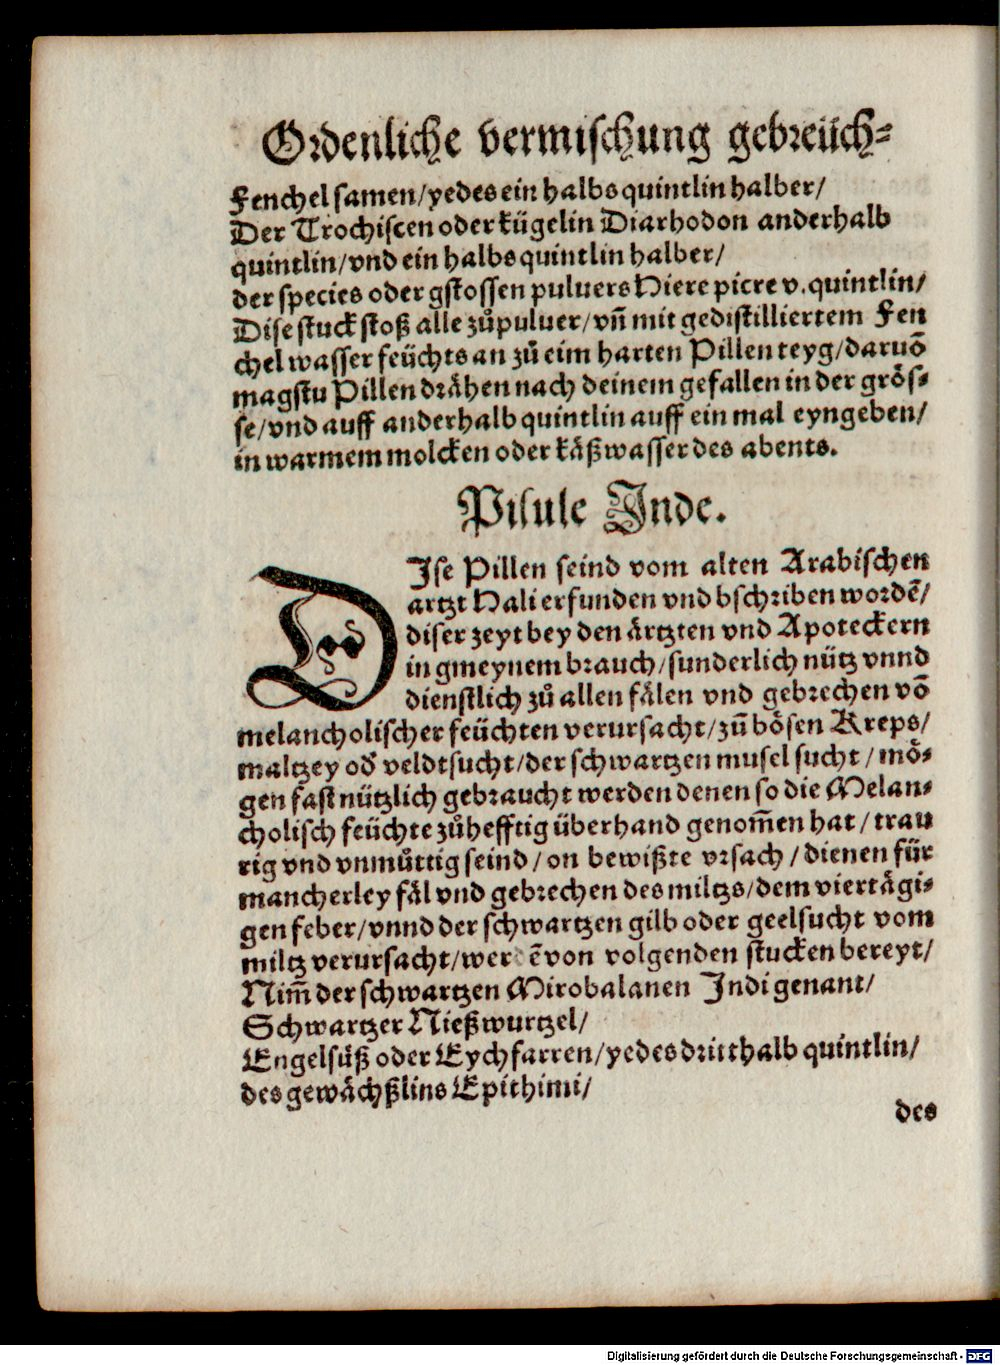 Ordenliche vermischung gebreüch⸗
Fenchel samen/yedes ein halbs quintlin halber/
Der Trochiscen oder kügelin Diarhodon anderhalb
quintlin/vnd ein halbs quintlin halber/
der species oder gstossen puluers Hiere picre v.quintlin/
Dise stuck stoß alle zůpuluer/vñ mit gedistilliertem Fen
chel wasser feüchts an zů eim harten Pillen teyg/daruõ
magstu Pillen drähen nach deinem gefallen in der grös⸗
se/vnd auff anderhalb quintlin auff ein mal eyngeben/
in warmem molcken oder käßwasser des abents.
Pilule Inde.
DIse Pillen seind vom alten Arabischen
artzt Hali erfunden vnd bschriben wordẽ/
diser zeyt bey den ärtzten vnd Apoteckern
in gmeynem brauch/sunderlich nütz vnnd
dienstlich zů allen fälen vnd gebrechen võ
melancholischer feüchten verursacht/zũ bösen Kreps/
maltzey od̛ veldtsucht/der schwartzen musel sucht/mö⸗
gen fast nützlich gebraucht werden denen so die Melan⸗
cholisch feüchte zůhefftig überhand genom̃en hat/trau
rig vnd vnmůttig seind/on bewißte vrsach/dienen für
mancherley fäl vnd gebrechen des miltzs/dem viertägi⸗
gen feber/vnnd der schwartzen gilb oder geelsucht vom
miltz verursacht/werdẽ von volgenden stucken bereyt/
Nim̃ der schwartzen Mirobalanen Indi genant/
Schwartzer Nießwurtzel/
Engelsüß oder Eychfarren/yedes dritthalb quintlin/
des gewächßlins Epithimi/
des
Digitalisierung gefördert durch die Deutsche Forschungsgemeinschaft - DFG